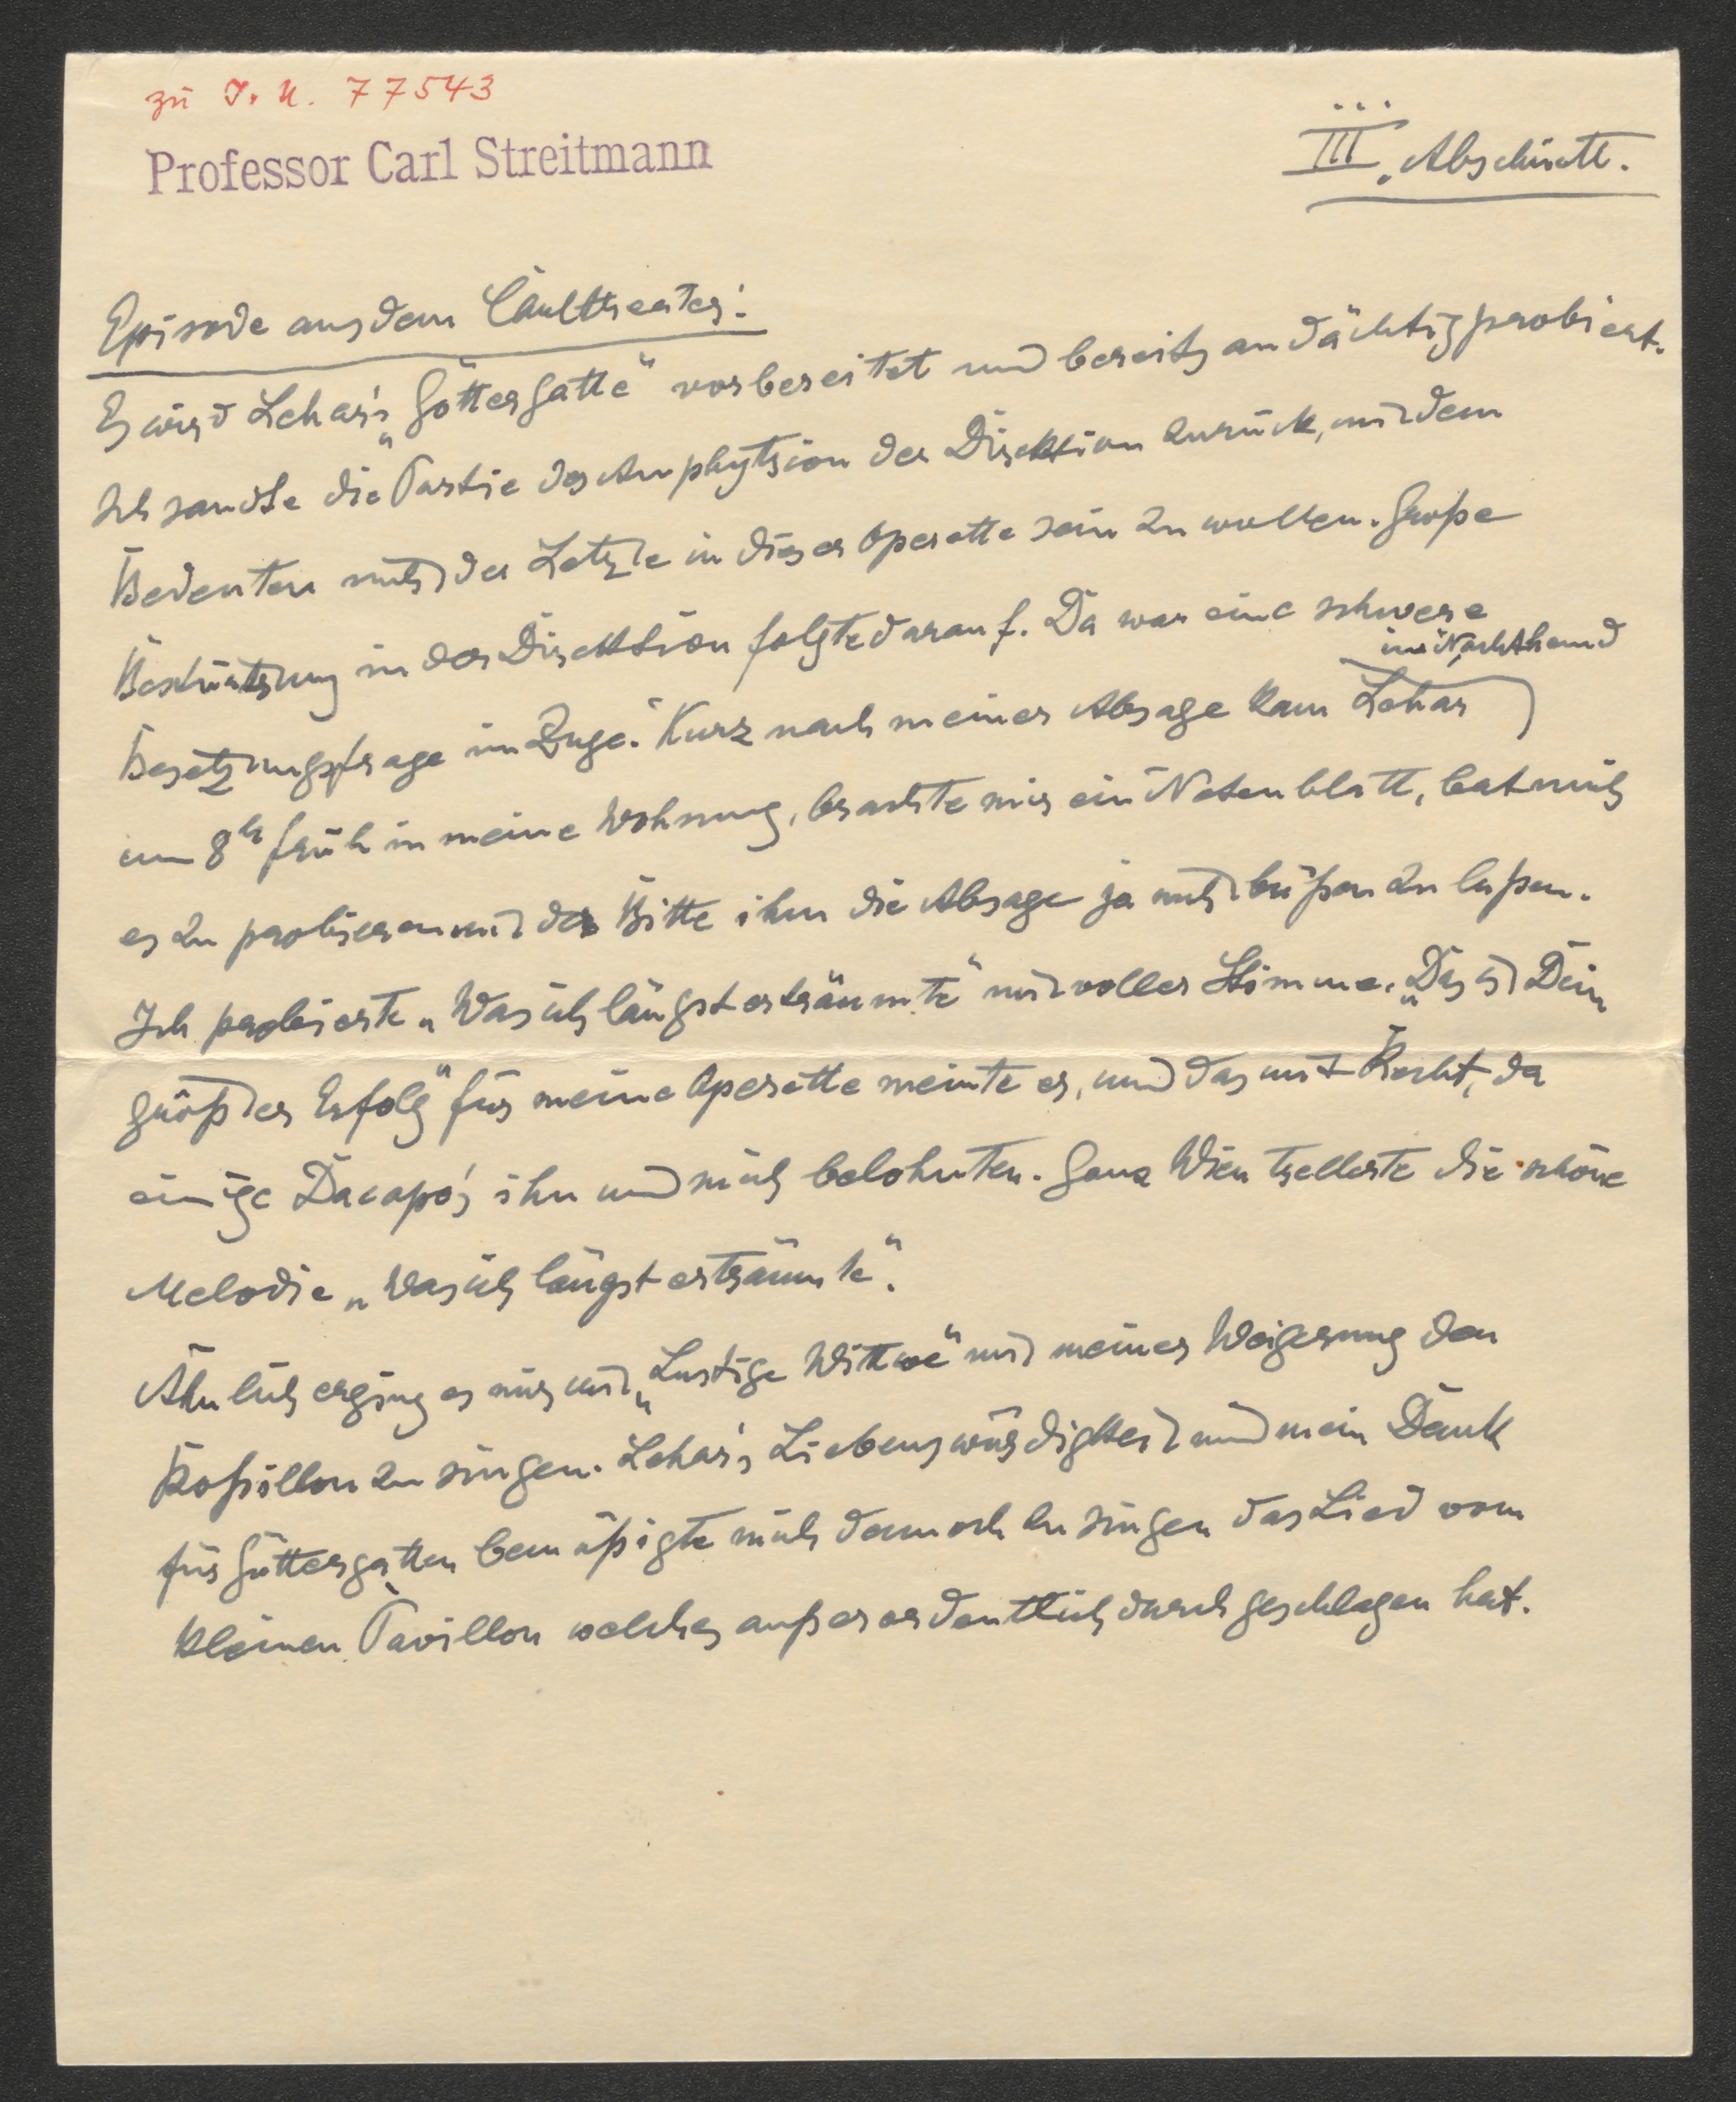 zu I. N. 77543
Professor Carl Streitmann
III. Abschnitt.
Episode aus dem Carltheater:
Es wird Lehar's „Göttergatte" vorbereitet und bereits andächtig probiert.
Ich sandte die Partie des Amphytrion der Direktion zurück, mit dem
Bedeuten nicht der Letzte in dieser Operette sein zu wollen. Große
Bestürtzung in der Direktion folgte darauf. Da war eine schwere
im Nachthemd
Besetzungsfrage im Zuge. Kurz nach meiner Absage kam Lehar
um 8h früh in meine Wohnung, brachte mir ein Notenblatt, bat mich
es zu probieren mit der Bitte ihm die Absage ja nicht büßen zu laßen.
Ich probierte „Was ich längst erträumte" mit voller Stimme. „Das ist Dein
größter Erfolg" für meine Operette meinte er, und das mit Recht, da
einige Dacapo's ihn und mich belohnten. Ganz Wien trellerte die schöne
Melodie „Was ich längst erträumte".
Ähnlich erging es mir mit „Lustige Wittwe" mit meiner Weigerung den
Roßillon zu singen. Lehar's Liebenswürdigkeit und mein Dank
für Göttergatten bemüßigte mich dennoch zu singen das Lied vom
kleinen Pavillon welches außerordentlich durchgeschlagen hat.